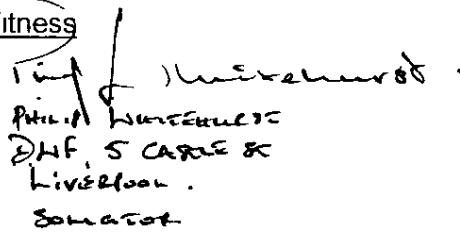 itness
Whitehurst
PHILIP WHITEHURST
DWF, 5 CASTLE ST
LIVERPOOL.
SOLICITOR